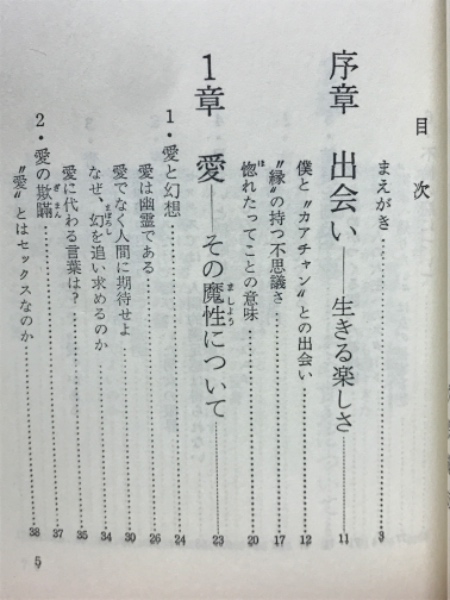 目次
まえがき 3
序章 出会い——生きる楽しさ 11
僕と〝カアチャン〟との出会い 12
〝縁〟の持つ不思議さ 17
惚れたってことの意味 20
1章 愛——その魔性について 23
1・愛と幻想 24
愛は幽霊である 26
愛でなく人間に期待せよ 30
なぜ、幻を追い求めるのか 34
愛に代わる言葉は? 35
2・愛の欺瞞 37
〝愛〟とはセックスなのか 38
5